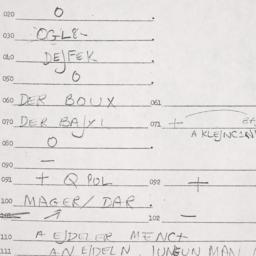 020 O
030 OGL8-
040 DEJFEK
050 O
060 DER BOUX 061
070 DER BAJXL 071 +
A KLEJNC1N
080 O
090 —
091 + Q POL 092 +
100 MAGER/DAR
102 —
110 A EJDELER MENC+
111 AN EJDELN JUNGUN MAN